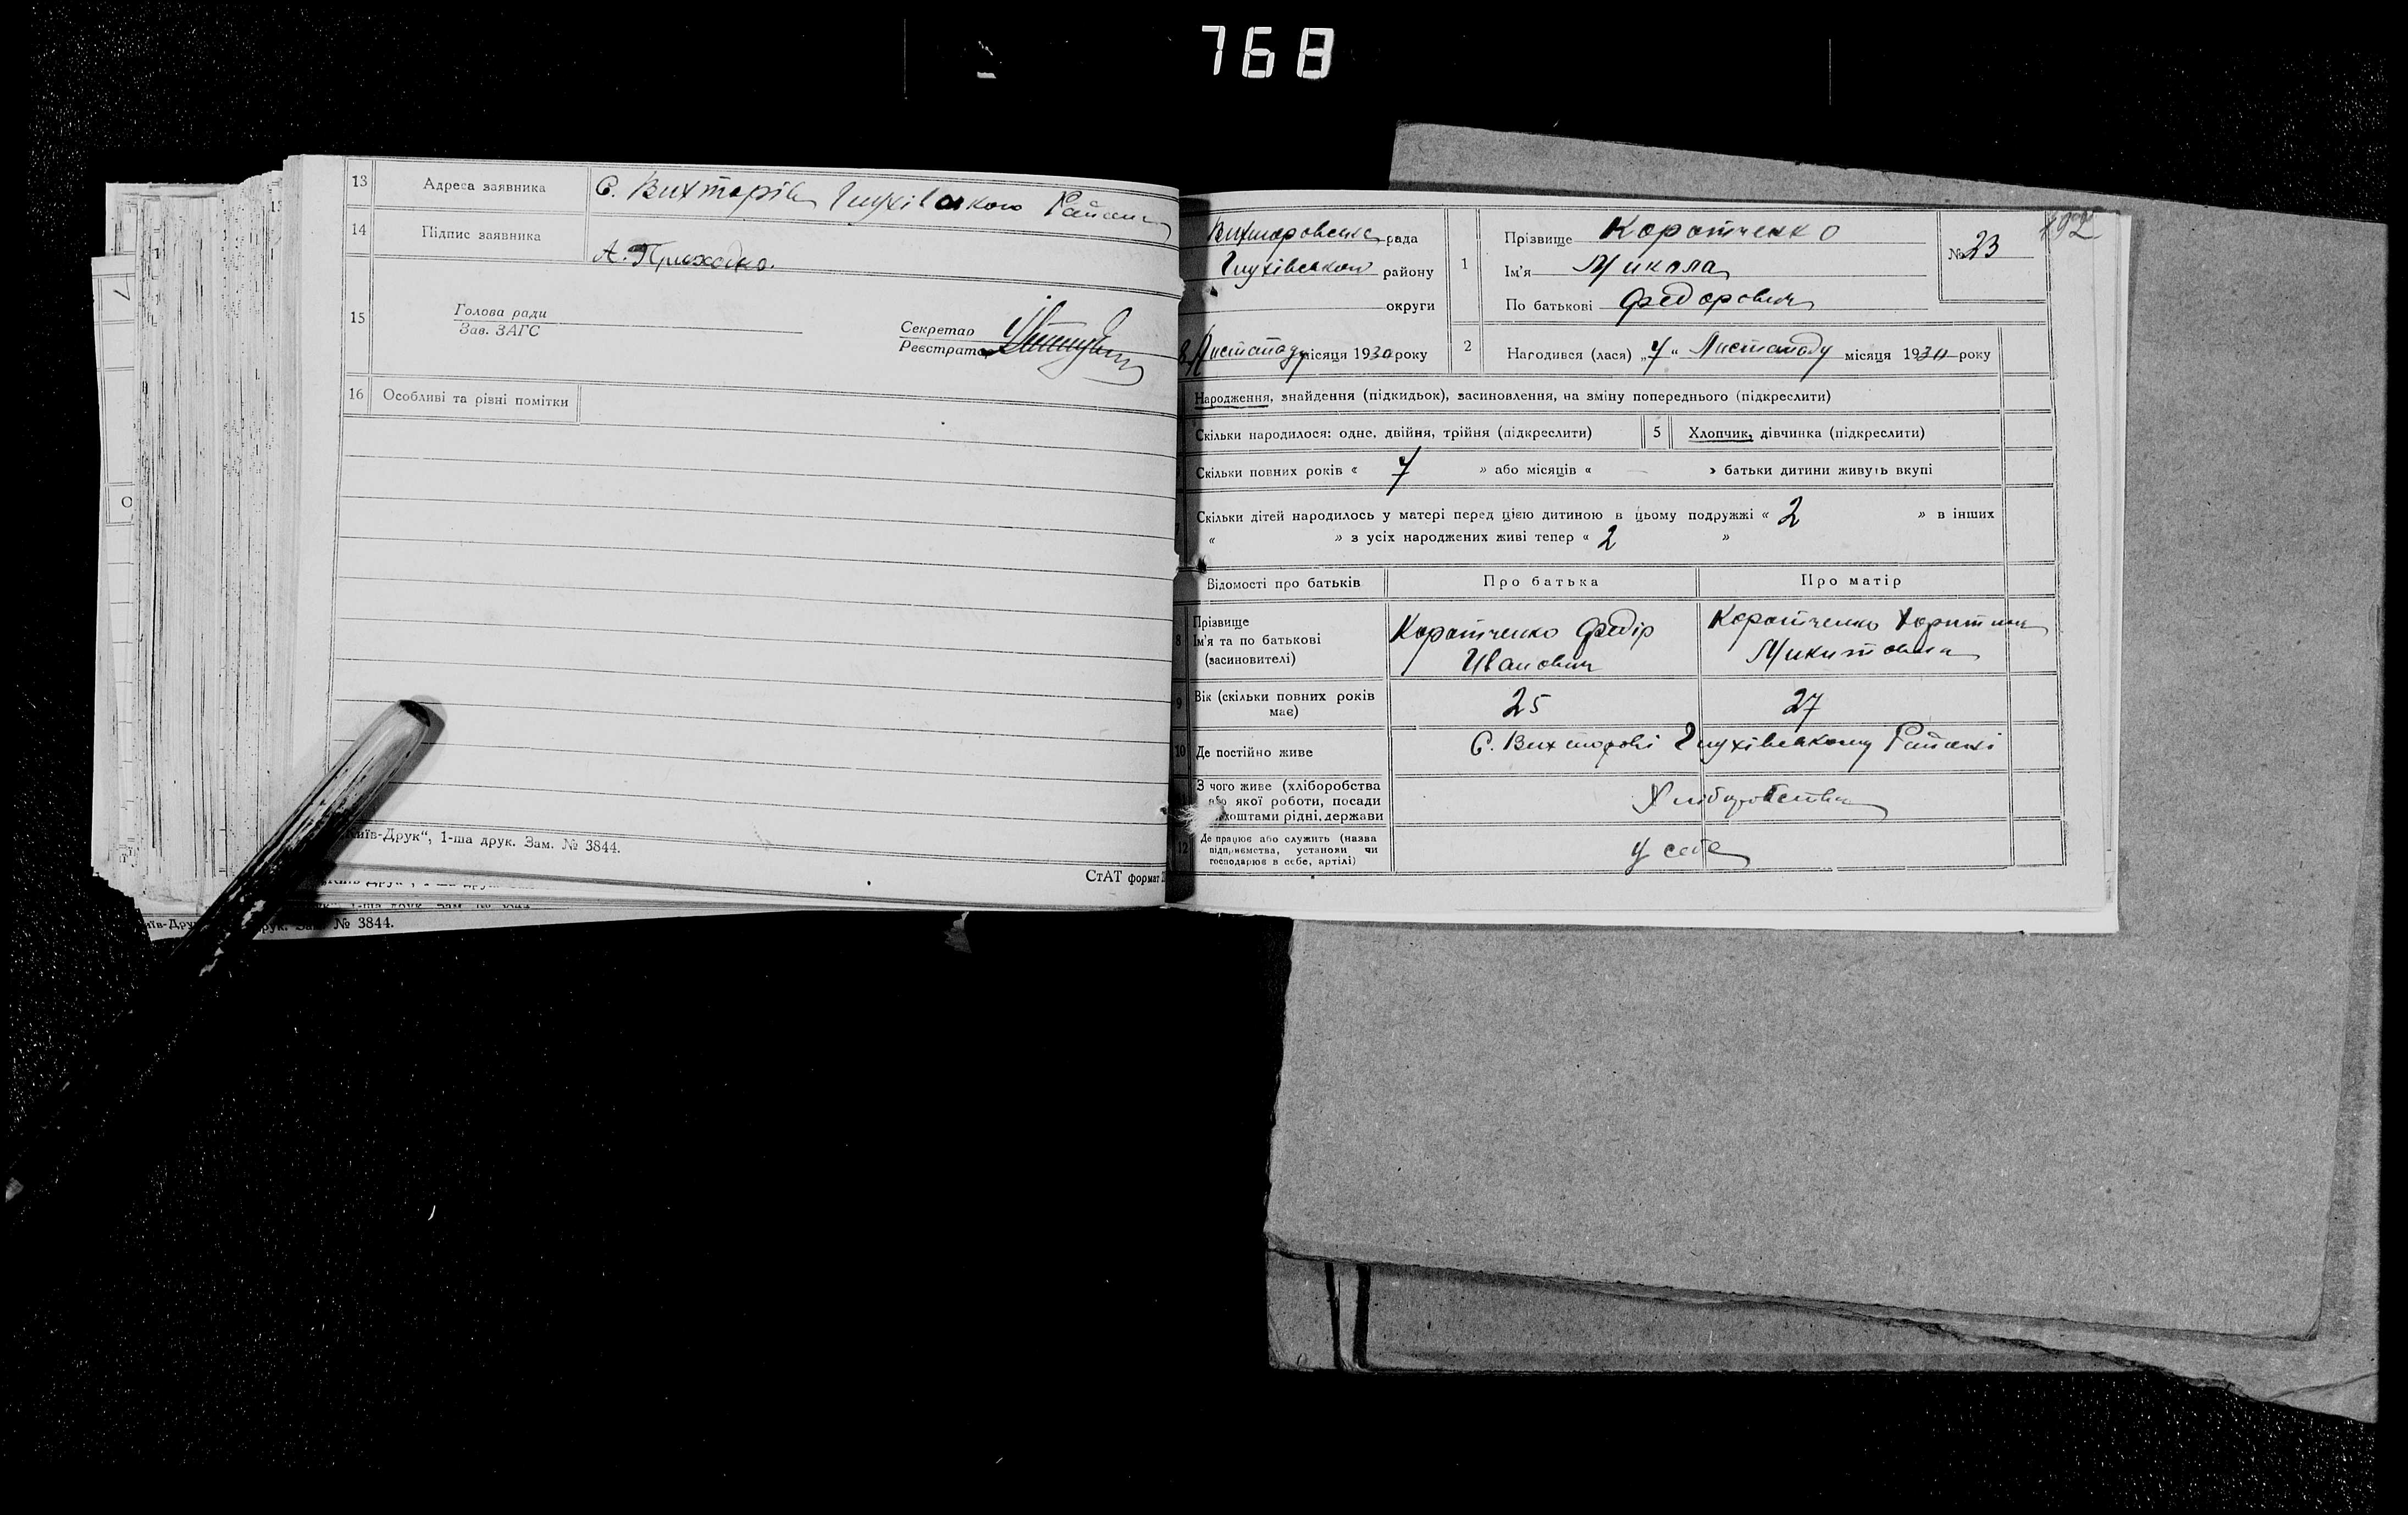 768
13 Адреса заявника С. Вихторів Глухівського Району
14 Підпис заявника А. Приходько.
15 Голова ради
Зав. ЗАГС
Секретар
Реєстратор
16 Особливі та різні помітки
Київ-Друк“, 1-ша друк. Зам. № 3844.
СтАТ формат
№ 3844.
192
Вихторовська рада
Глухівського району
округи
8 Листопаду місяця 1930 року
1 Прізвище Коротченко
Ім'я Микола
По батькові Федорович
№ 23
2 Народився (лася) „7“ Листопаду місяця 1930 року
Народження, знайдення (підкидьок), засиновлення, на зміну попереднього (підкреслити)
Скільки народилося: одне, двійня, трійня (підкреслити) 5 Хлопчик, дівчинка (підкреслити)
Скільки повних років « 7 » або місяців « — » батьки дитини живуть вкупі
Скільки дітей народилось у матері перед цією дитиною в цьому подружжі « 2 » в інших
« » з усіх народжених живі тепер « 2 »
Відомості про батьків Про батька Про матір
8 Прізвище
Ім'я та по батькові
(засиновителі)
Коротченко Федір
Иванович
Коротченко Хоритина
Микитовна
9 Вік (скільки повних років має) 25 27
10 Де постійно живе С. Вихторові Глухівському Районі
З чого живе (хліборобства
або якої роботи, посади
коштами рідні, держави
Хліборобства
12 Де працює або служить (назва
підприємства, установи чи
господарює в себе, артілі)
у себе